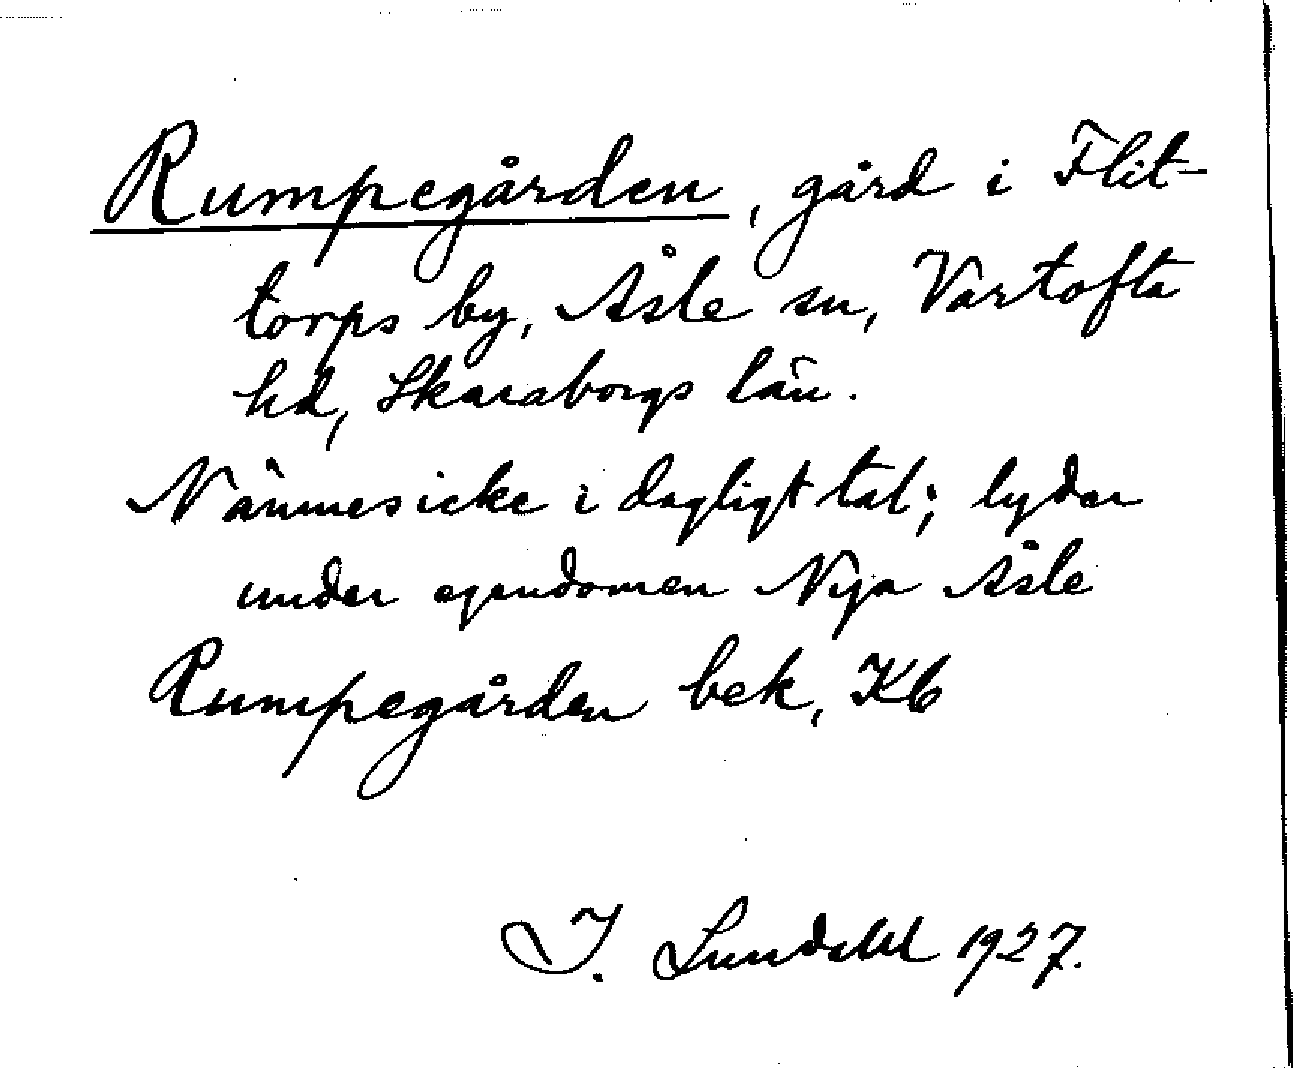 Rumpegården, gård i Flit-
torps by, Åsle sn, Vartofta
hd, Skaraborgs län.
Nämnes icke i dagligt tal; lyder
under egendomen Nya Åsle
Rumpegården bek, Kb
I. Lundahl 1927.